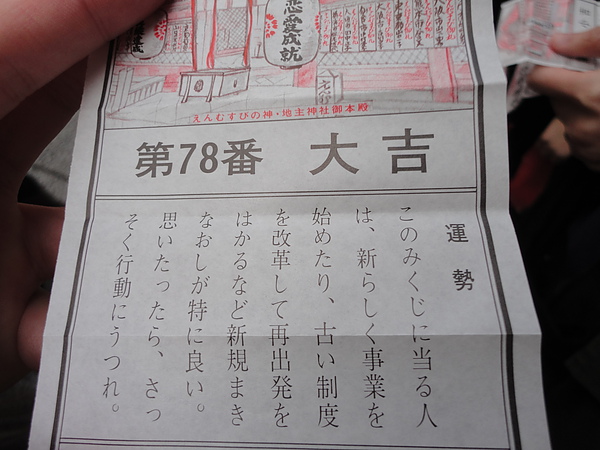 恋愛成就
えんむすびの神・地主神社御本殿
第78番 大吉
運勢
このみくじに当る人
は、新らしく事業を
始めたり、古い制度
を改革して再出発を
はかるなど新規まき
なおしが特に良い。
思いたったら、さっ
そく行動にうつれ。